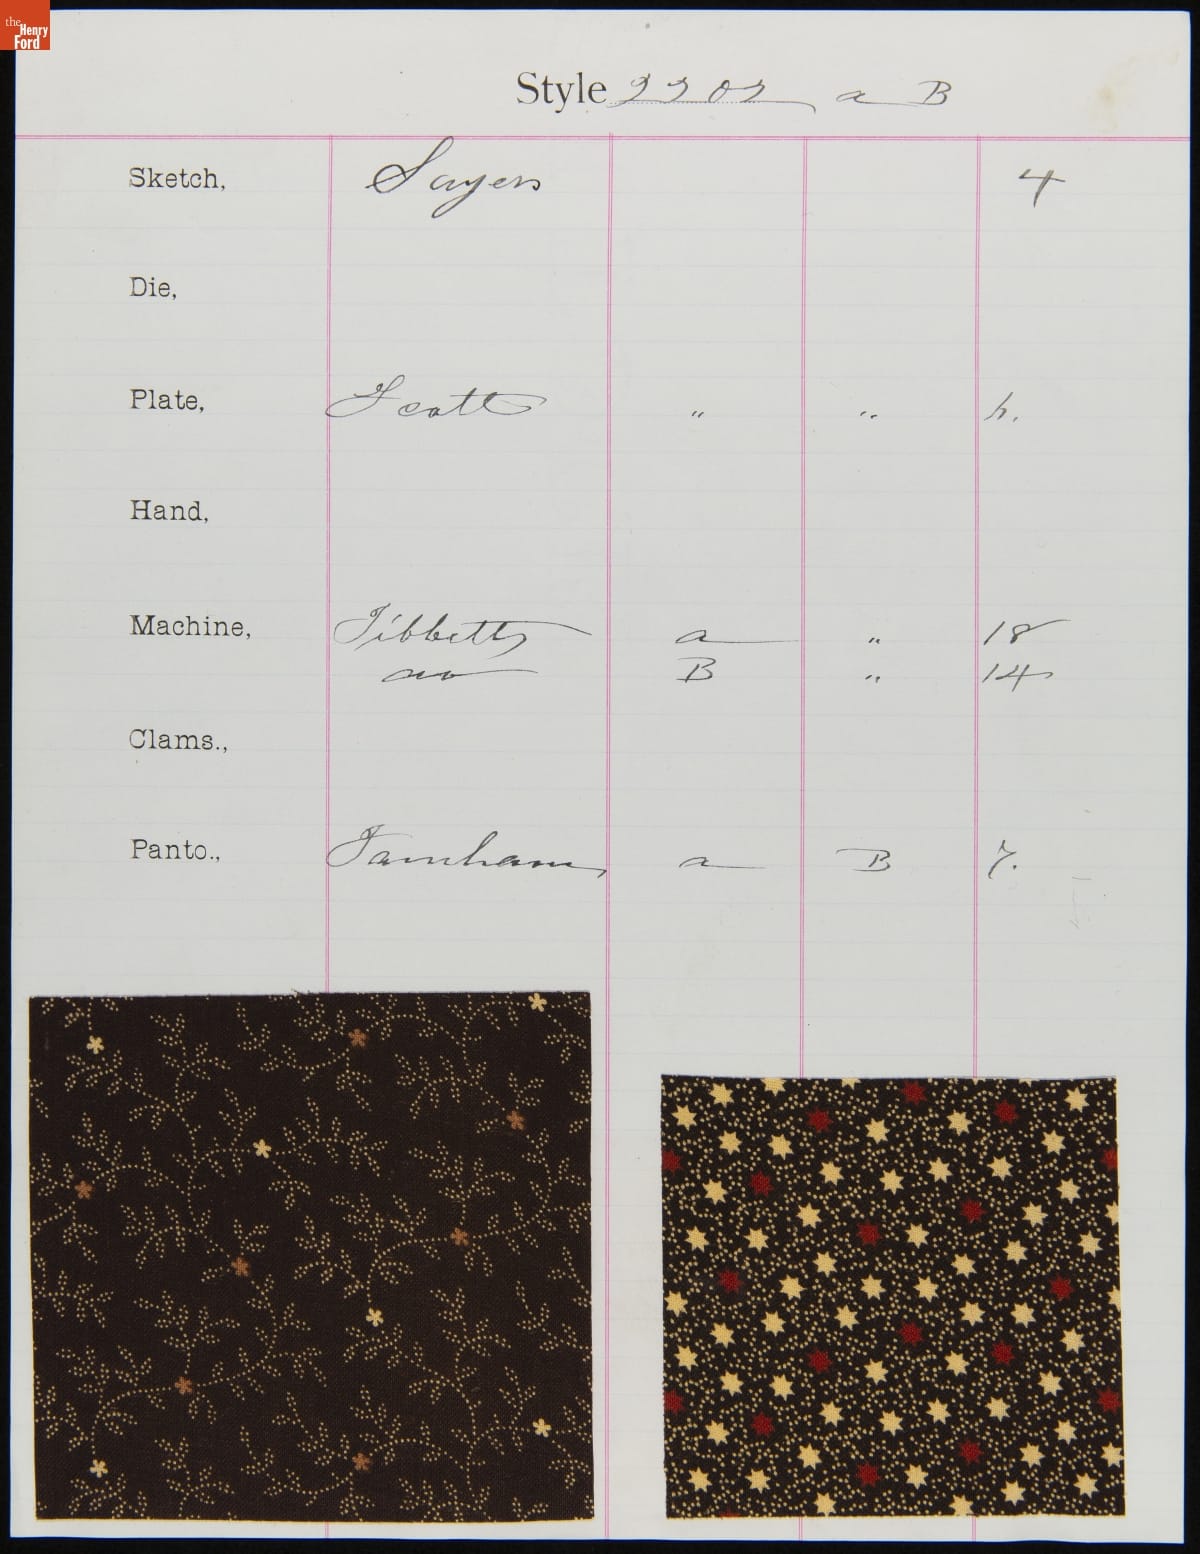 the
Henry
Ford
Style 2202 a B
Sketch, Sayers 4
Die,
Plate, Scott " " h.
Hand,
Machine, Tibbetts a " 18
B " 14
Clams.,
Panto., Farnham a B 7.